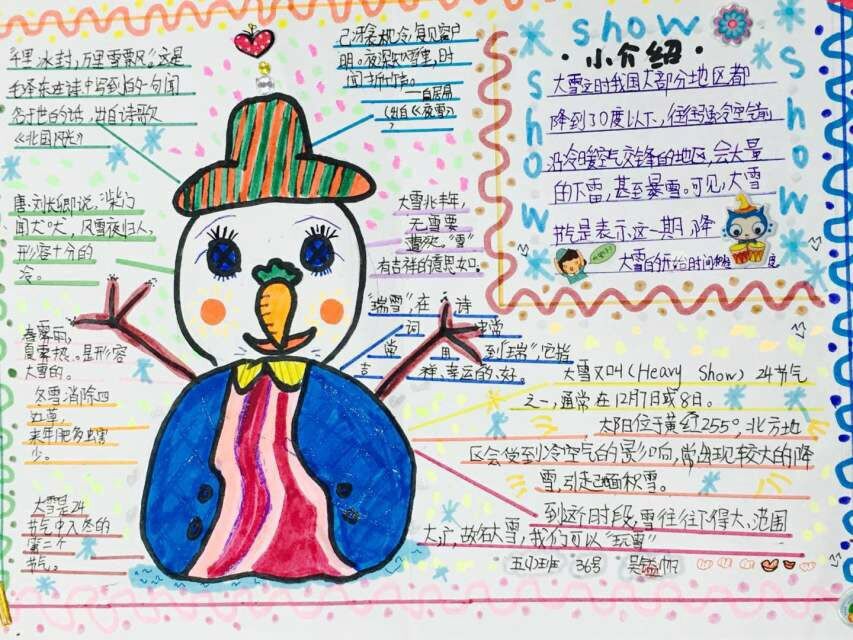 "千里冰封,万里雪飘"。这是
毛泽东在诗中写到的一句闻
名于世的话,出自诗歌
《北国风光》
已讶衾枕冷,复见窗户
明。夜深知雪重,时
闻折竹声。
——白居易
(出自《夜雪》
)
唐·刘长卿说:"柴门
闻犬吠,风雪夜归人。
形容十分的
冷。
大雪兆丰年,
无雪要
遭灾。"雪"
有吉祥的意思如。
"瑞雪",在 诗
词 中常
常 用 到"瑞",它指
吉 祥、幸运的、好。
春雾雨,
夏雾热。是形容
大雪的。
冬雪消除四
边草,
来年肥多虫害
少。
大雪是24
节气中入冬的
第三个
节气。
show
show
show
·小介绍·
大雪之时我国大部分地区都
降到了0度以下,往往强冷空气前
沿冷暖空气交锋的地区,会大量
的下雪,甚至暴雪。可见,大雪
节气是表示这一期 降
大雪的开始时间和 度
大雪又叫(Heavy Show)24节气
之一,通常在12月7日或8日。
太阳位于黄经255°,北方地
区会受到冷空气的影响,常出现较大的降
雪,引起大面积雪。
到这个时段,雪往往下得大、范围
大广,故名大雪,我们可以"玩雪"
五(1)班 36号 吴